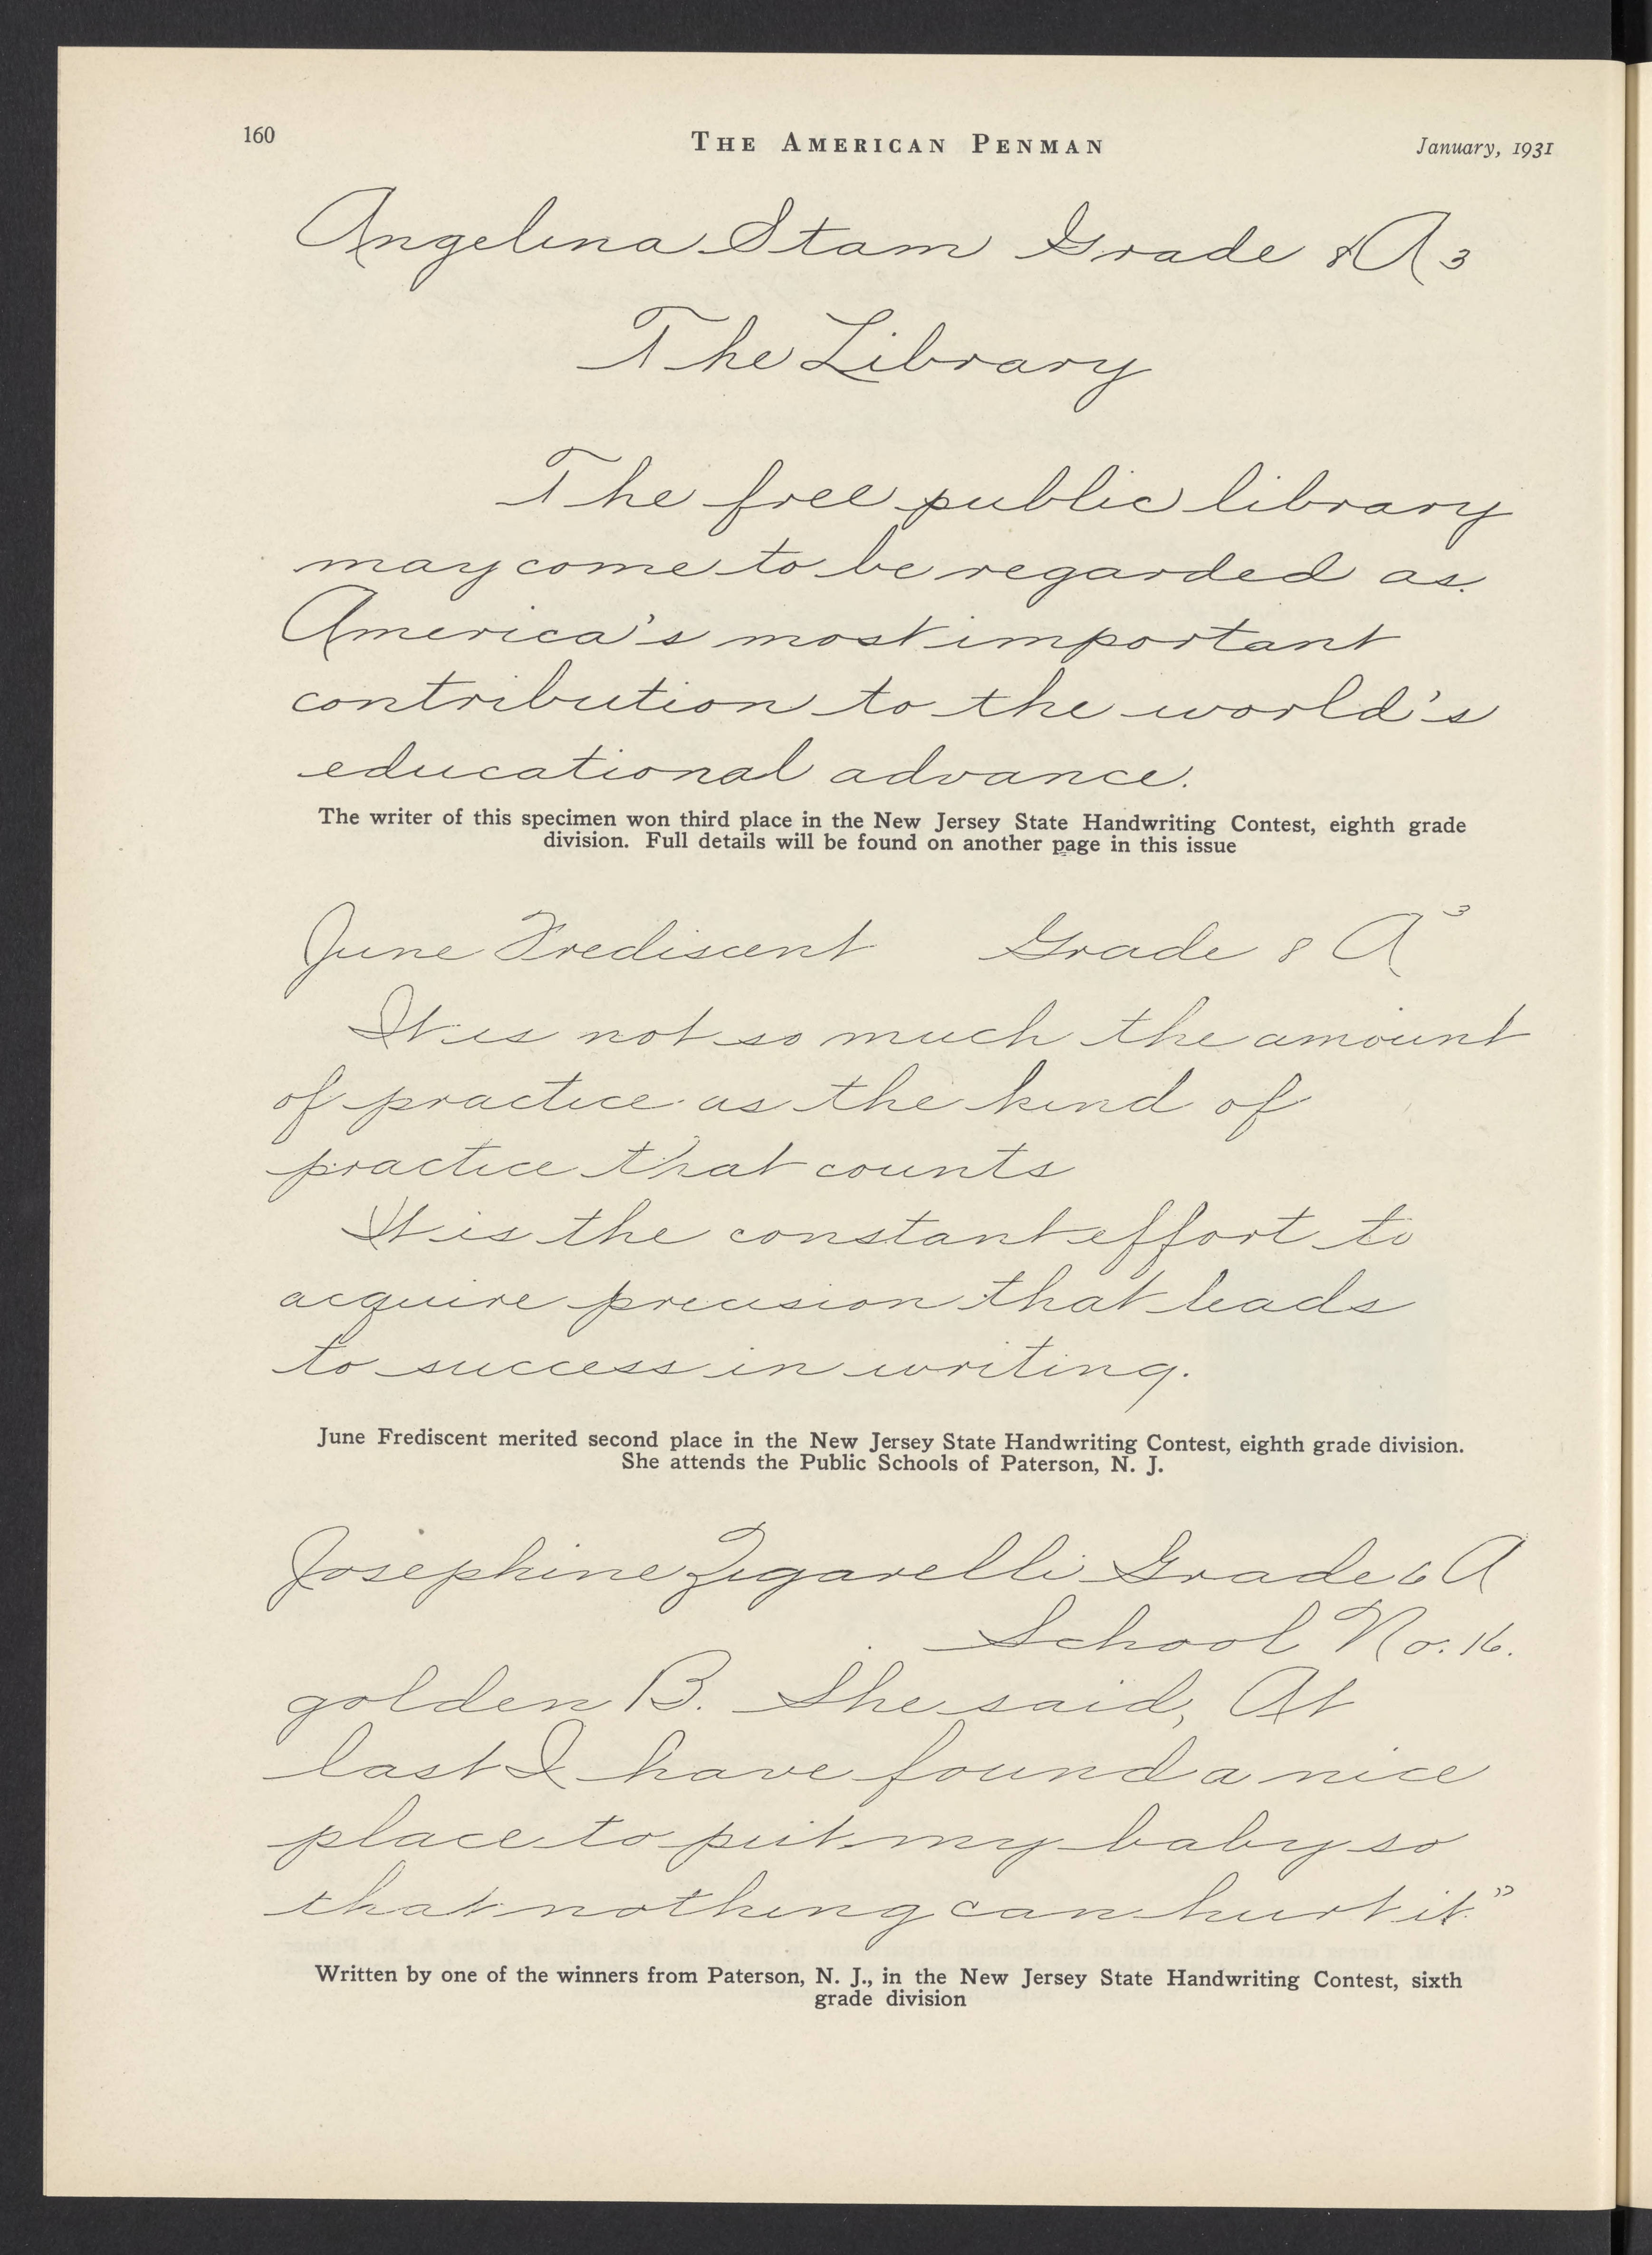 160
THE AMERICAN PENMAN
January, 1931
Angelina Stam Grade 8A3
The Library
The free public library
may come to be regarded as
America's most important
contribution to the world's
educational advance.
The writer of this specimen won third place in the New Jersey State Handwriting Contest, eighth grade
division. Full details will be found on another page in this issue
June Frediscent Grade 8 A3
It is not so much the amount
of practice as the kind of
practice that counts
It is the constant effort to
acquire precision that leads
to success in writing.
June Frediscent merited second place in the New Jersey State Handwriting Contest, eighth grade division.
She attends the Public Schools of Paterson, N. J.
Josephine Zigarelli Grade 6 A
School No. 16.
golden B. She said, At
last I have found a nice
place to put my baby so
that nothing can hurt it."
Written by one of the winners from Paterson, N. J., in the New Jersey State Handwriting Contest, sixth
grade division